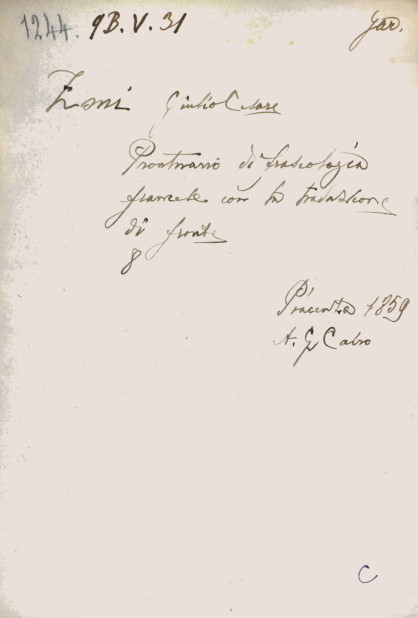 1244. 9B.V.31 Gar.
Zini Giulio Cesare
Prontuario di fraseologia
francese con la traduzione
di fronte
8
Piacenza 1859
A. G. Cairo
C